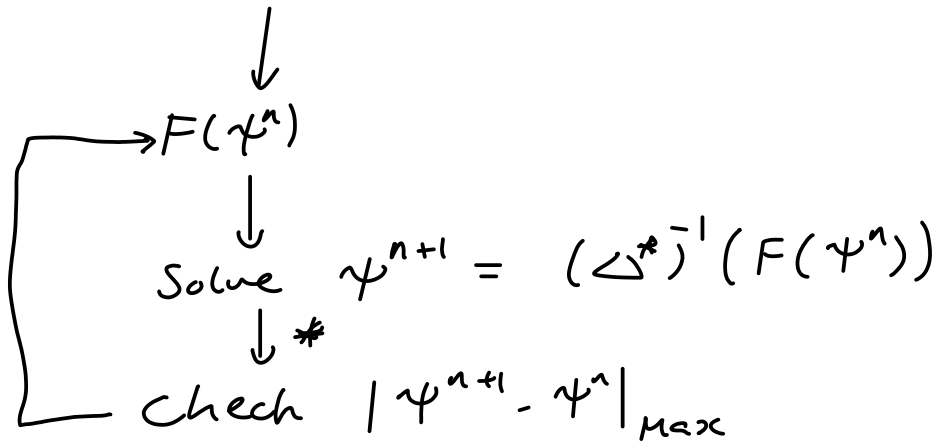 F(ψⁿ)
Solve ψⁿ⁺¹ = (Δ*)⁻¹(F(ψⁿ))
*
Check |ψⁿ⁺¹ - ψⁿ|ₘₐₓ